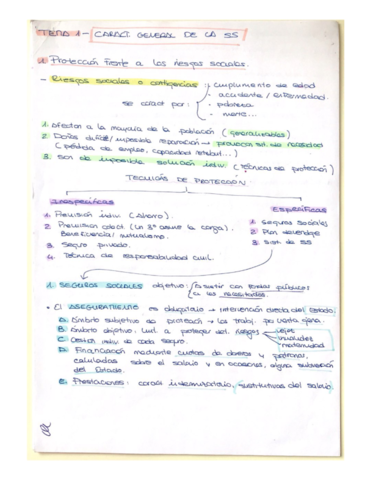 TEMA 1 - CARACT. GENERAL DE LA SS
1. Protección frente a los riesgos sociales.
- Riesgos sociales o contingencias: · cumplimiento de edad
· accidente / enfermedad.
se caract por: · pobreza
· muerte...
1. Afectan a la mayoría de la población (generalizables)
2. Daños difícil/imposible reparación → provocan sit. de necesidad
(pérdida de empleo, capacidad retribut...)
3. Son de imposible solución indiv. (técnicas de protección)
TECNICAS DE PROTECCIÓN
Inespecíficas
Específicas
1. Previsión indiv. (Ahorro).
2. Previsión colect. (un 3º asume la carga).
Beneficencia/ mutualismo.
3. Seguro privado.
4. Técnica de responsabilidad civil.
1. Seguros sociales
2. Plan
3. Sist. de SS
1. SEGUROS SOCIALES objetivo: asistir con fondos públicos
a los necesitados.
• El ASEGURAMIENTO es obligatorio → intervención directa del Estado.
A. Ámbito subjetivo de protección → los trabaj. por cuenta ajena.
B. Ámbito objetivo. Luel a proteger det. riesgos
vejez
invalidez
maternidad
C. Gestión indiv. de cada seguro.
D. Financiación mediante cuotas de obreros y patronos,
calculadas sobre el salario y en ocasiones, alguna subvención
del Estado.
E. Prestaciones: caract indemnizatorio, sustitutivas del salario.